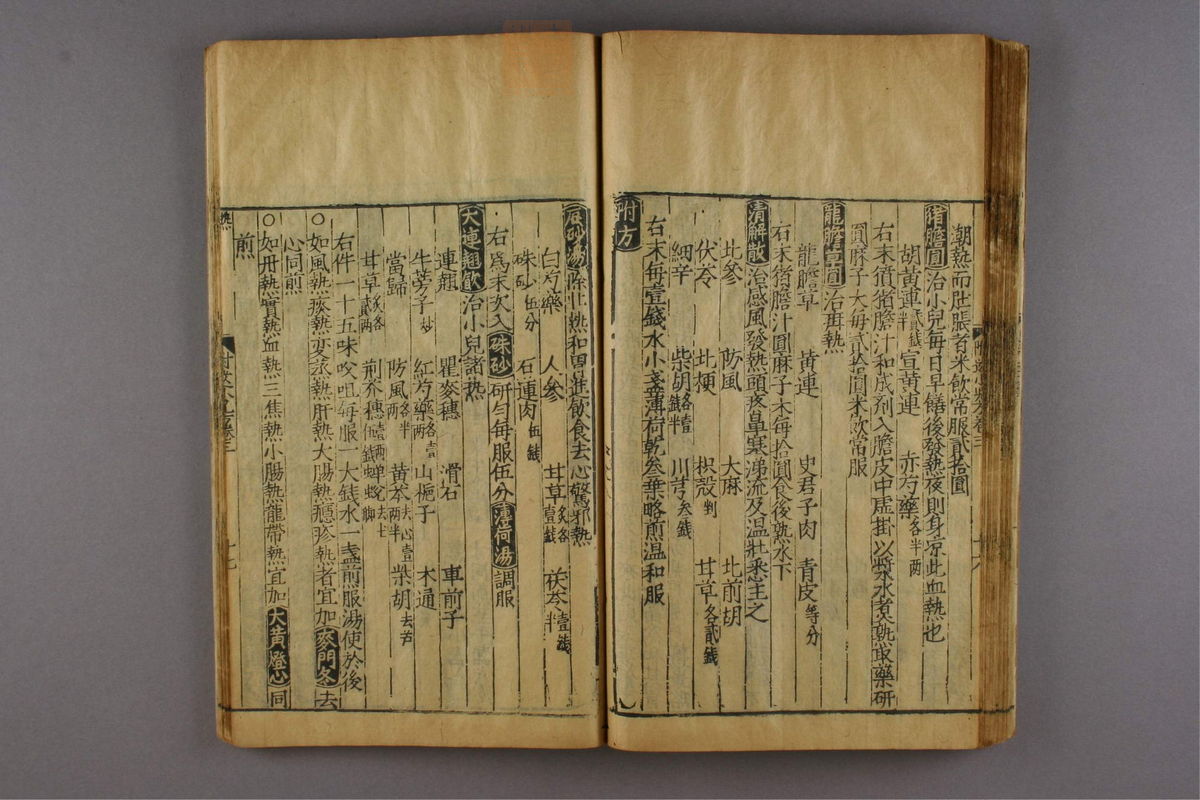 潮熱而肚脹者米飲常服貳拾圓
猪膽圓治小兒每日早饍後發熱夜則身凉此血熱也
胡黃連貳錢半 宣黃連 赤芍藥各半两
右末獖猪膽汁和成劑入膽皮中虛掛以漿水煮熟取藥研
圓麻子大每貳拾圓米飲常服
龍膽草圓治疳熱
龍膽草 黃連 史君子肉 青皮等分
右末猪膽汁圓麻子大每拾圓食後熟水下
清解散治感風發熱頭疼鼻塞涕流及温壯悉主之
北參 防風 大麻 北前胡
伏苓 北梗 枳殼 甘草各貳錢
細辛 柴胡各壹錢半 川芎叁錢
右末每壹錢水小盞薄荷乾叁葉略煎温和服
附方
辰砂湯除壯熱和胃進飲食去心驚邪熱
白芍藥 人參 甘草炙各壹錢 茯苓壹錢半
硃砂伍分 石蓮肉伍錢
右爲末次入硃砂研勻每服伍分薄荷湯調服
大連翹飲治小兒諸熱
連翹 瞿麥穗 滑石 車前子
牛蒡子炒 紅芍藥各壹两 山梔子 木通
當歸 防風各半两 黃芩去心壹两半 柴胡去芦
甘草炙各貳两 荆芥穗 蟬蛻去脚
右件一十五味㕮咀每服一大錢水一盞煎服湯使於後
○如風熱痰熱変蒸熱肝熱大腸熱癮疹熱者宜加麥門冬去
心同煎
○如丹熱實熱血熱三焦熱小腸熱龍帶熱宜加大黃燈心同
煎